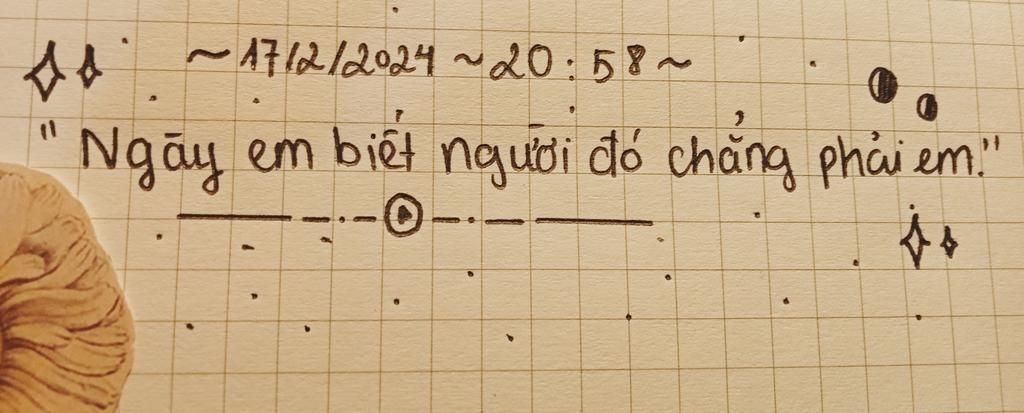 ~ 17/2/2024 ~ 20:58 ~
"Ngày em biết người đó chẳng phải em."